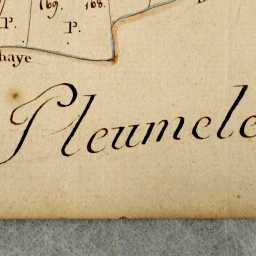 169. 168.
P. P.
haye
Pleumele